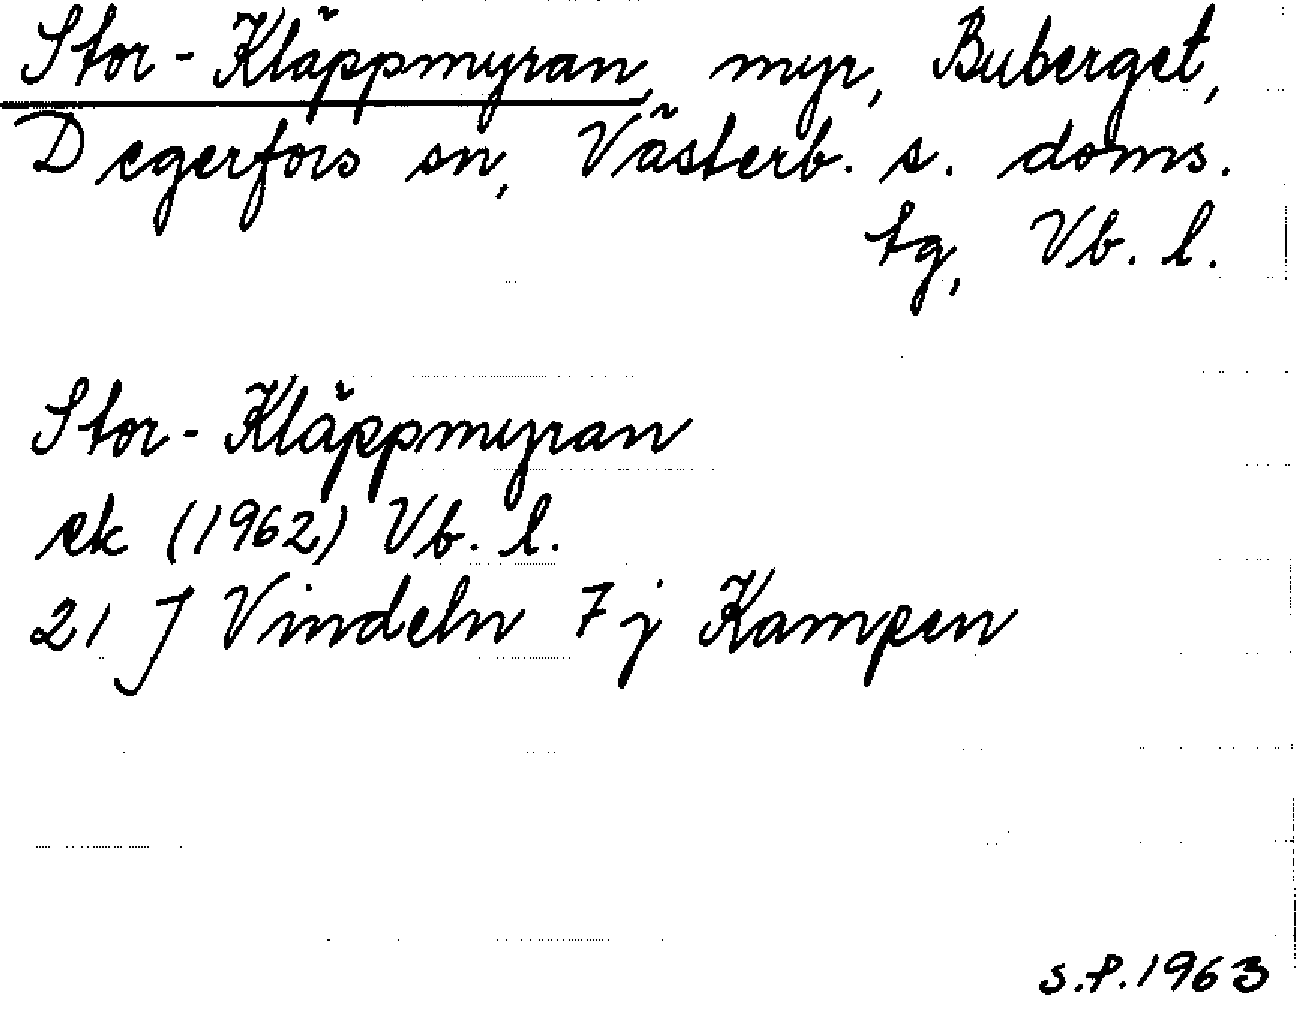 Stor-Kläppmyran, myr, Buberget,
Degerfors sn, Västerb. s. doms.
tg, Vb. l.
Stor-Kläppmyran
ek (1962) Vb. l.
21 J Vindeln 7 j Kampen
s.f. 1963